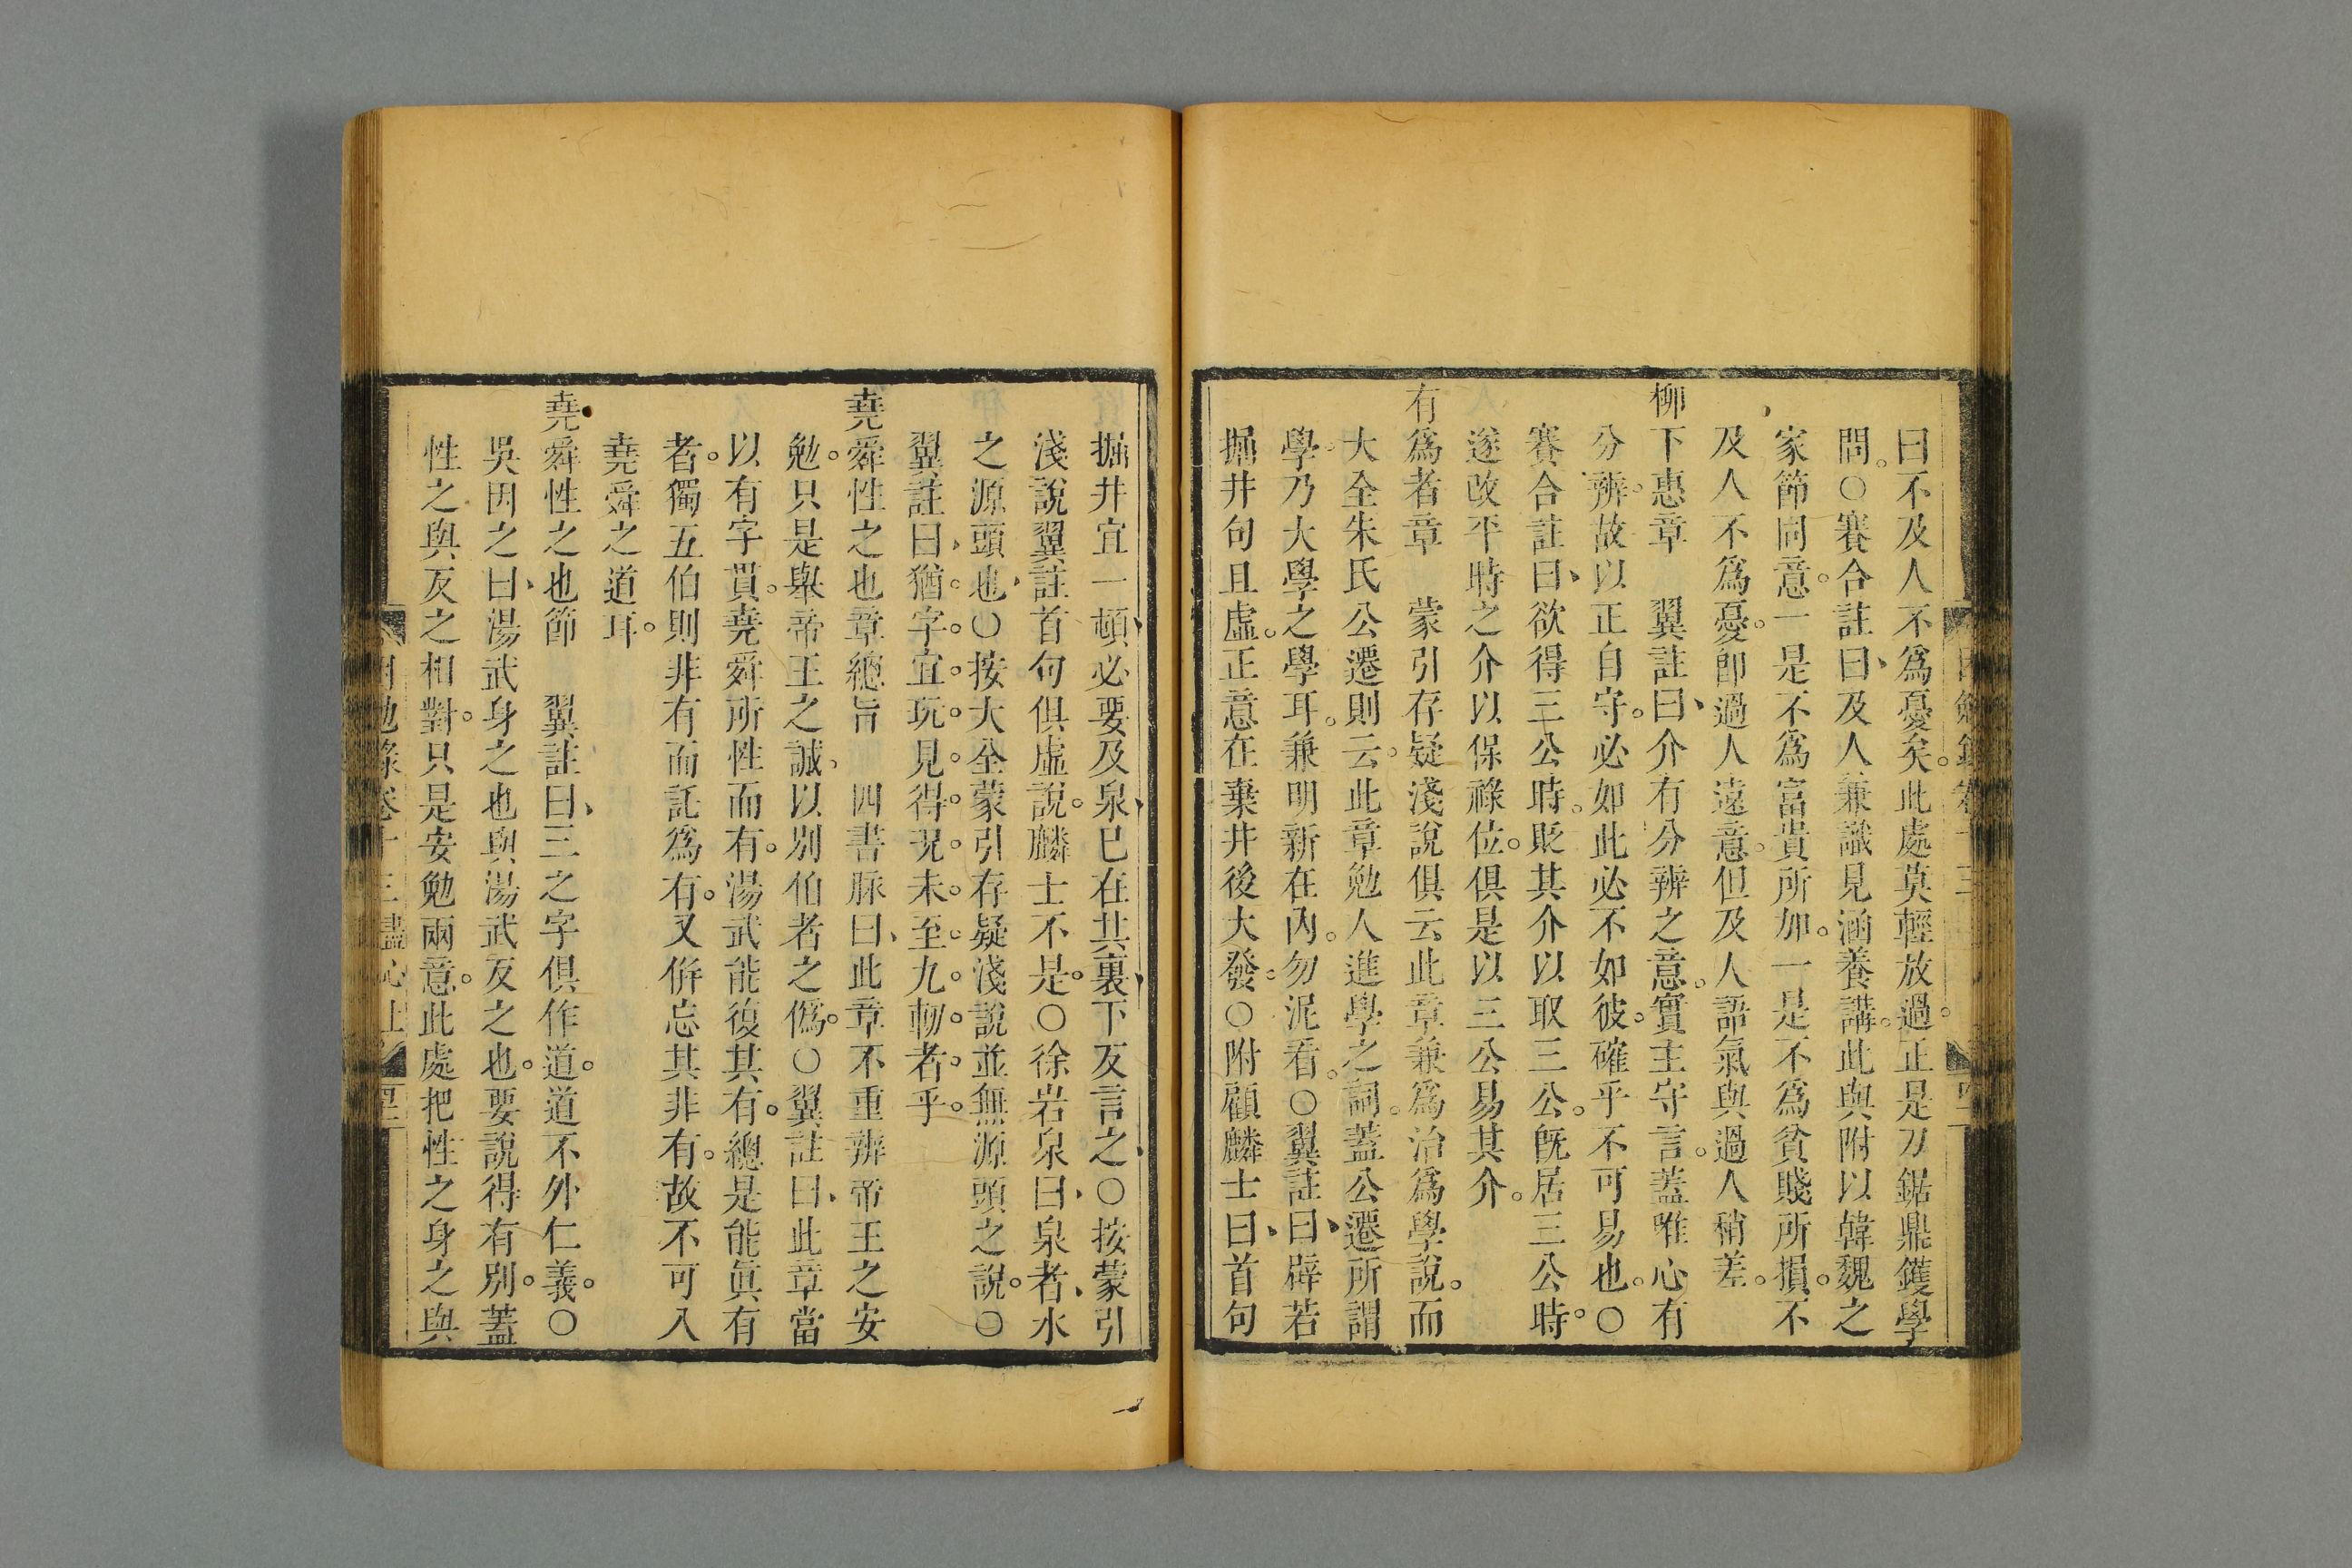 曰不及人不爲憂矣。此處莫輕放過。正是刀鋸鼎鑊學
問。○賽合註曰、及人兼識見涵養講。此與附以韓魏之
家節同意。一是不爲富貴所加。一是不爲貧賤所損。不
及人不爲憂。卽過人遠意。但及人語氣與過人稍差。
柳下惠章　翼註曰、介有分辨之意。實主守言。蓋唯心有
分辨。故以正自守。必如此必不如彼。確乎不可易也。○
賽合註曰、欲得三公時。貶其介以取三公。旣居三公時。
遂改平時之介以保祿位。俱是以三公易其介。
有爲者章　蒙引存疑淺說俱云此章兼爲治爲學說。而
大全朱氏公遷則云。此章勉人進學之詞。蓋公遷所謂
學。乃大學之學耳。兼明新在內。勿泥看。○翼註曰、辟若
掘井句且虛。正意在棄井後大發。○附顧麟士曰、首句
掘井宜一頓、必要及泉、已在其裏、下反言之、○按蒙引
淺說翼註首句俱虛說。麟士不是。○徐岩泉曰、泉者、水
之源頭也、○按大全蒙引存疑淺說並無源頭之說。○
翼註曰、猶。字。宜。玩。見。得。況。未。至。九。軔。者。乎。
堯舜性之也章總旨　四書脉曰、此章不重辨帝王之安
勉。只是舉帝王之誠、以別伯者之僞。○翼註曰、此章當
以有字貫。堯舜所性而有。湯武能復其有。總是能眞有
者。獨五伯則非有而託爲有。又倂忘其非有。故不可入
堯舜之道耳。
堯舜性之也節　翼註曰、三之字俱作道。道不外仁義。○
吳因之曰、湯武身之也與湯武反之也。要說得有別。蓋
性之與反之相對。只是安勉兩意。此處把性之身之與
困勉錄卷十三盡心上